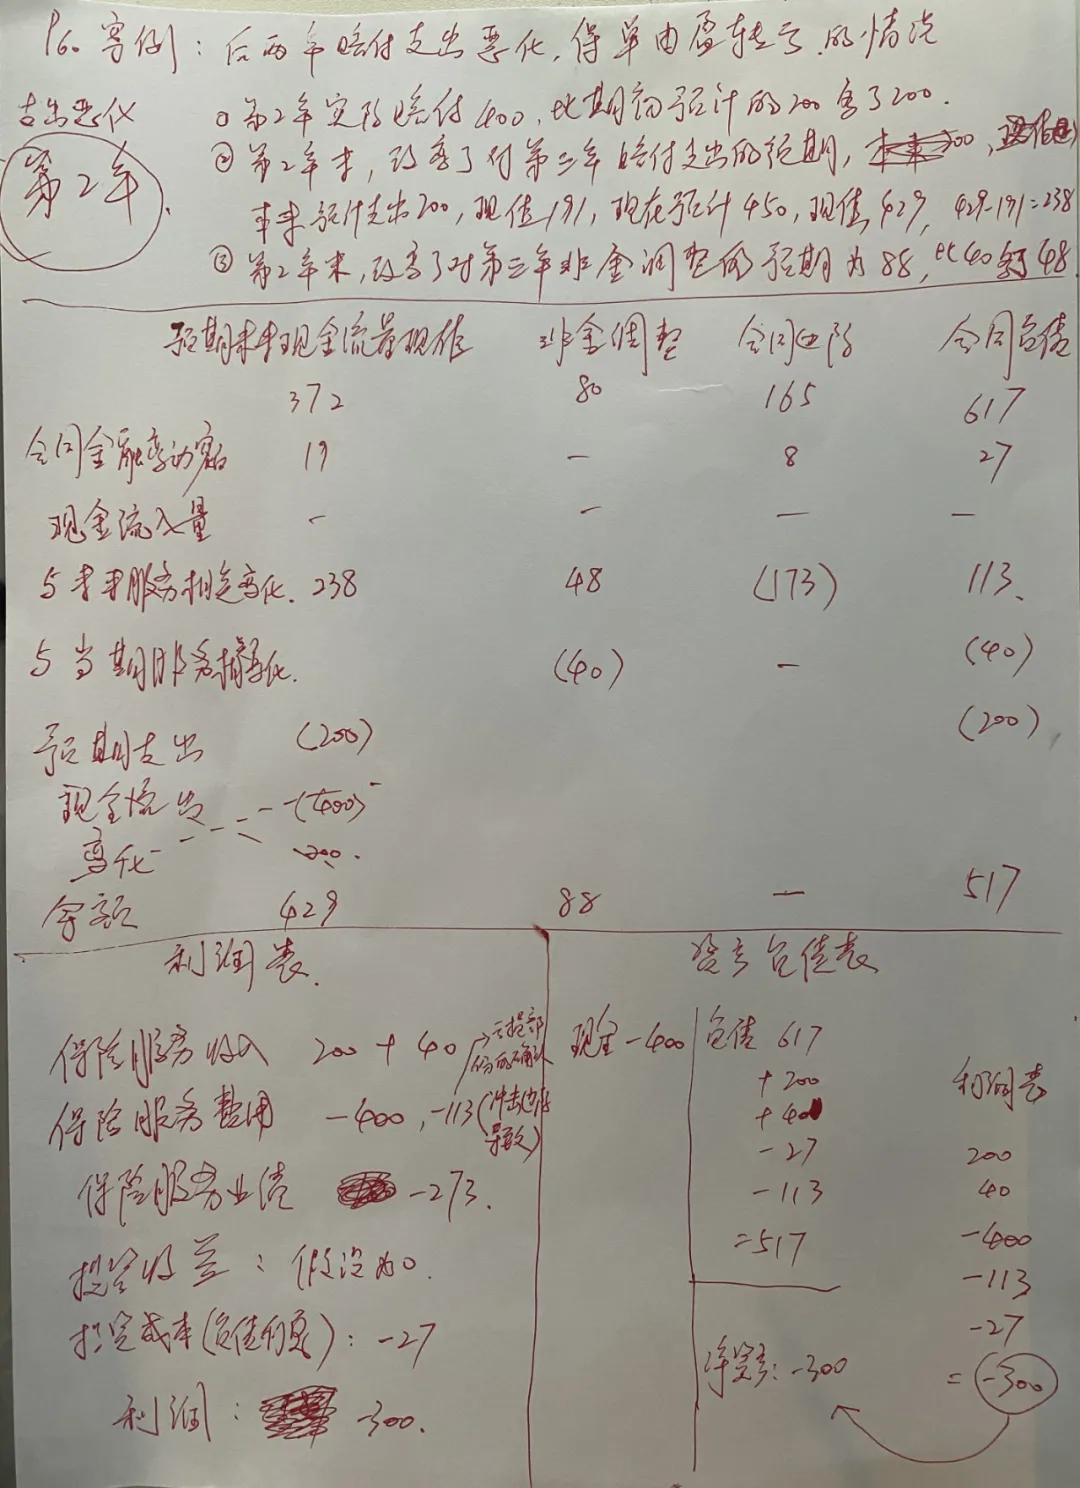 P60 案例：后两年赔付支出恶化，保单由盈转亏的情况
支出恶化
第2年
① 第2年实际赔付400，比期初预计的200高了200．
② 第2年末，改变了对第三年赔付支出的预期，
本来预计支出200，现值191，现在预计450，现值429，429-191=238
③ 第2年末，改高了对第三年非金调整的预期为88，比40高了48
预期未来现金流量现值 非金调整 合同边际 合同负债
372 80 165 617
合同金融变动额 19 － 8 27
现金流入量 － － － －
与未来服务相关变化．238 48 (173) 113
与当期服务相关变化． (40) － (40)
预期支出 (200) (200)
现金流出 (400)
变化 200
余额 429 88 － 517
利润表．
保险服务收入 200 + 40 →亏损部份的确认
保险服务费用 -400，-113 (冲击边际导致)
保险服务业绩 -273．
投资收益：假设为0．
投资成本(负债的息)：-27
利润： -300．
资产负债表
现金 -400 负债 617
+200
+40
-27
-113
=517
净资产：-300
利润表
200
40
-400
-113
-27
= -300